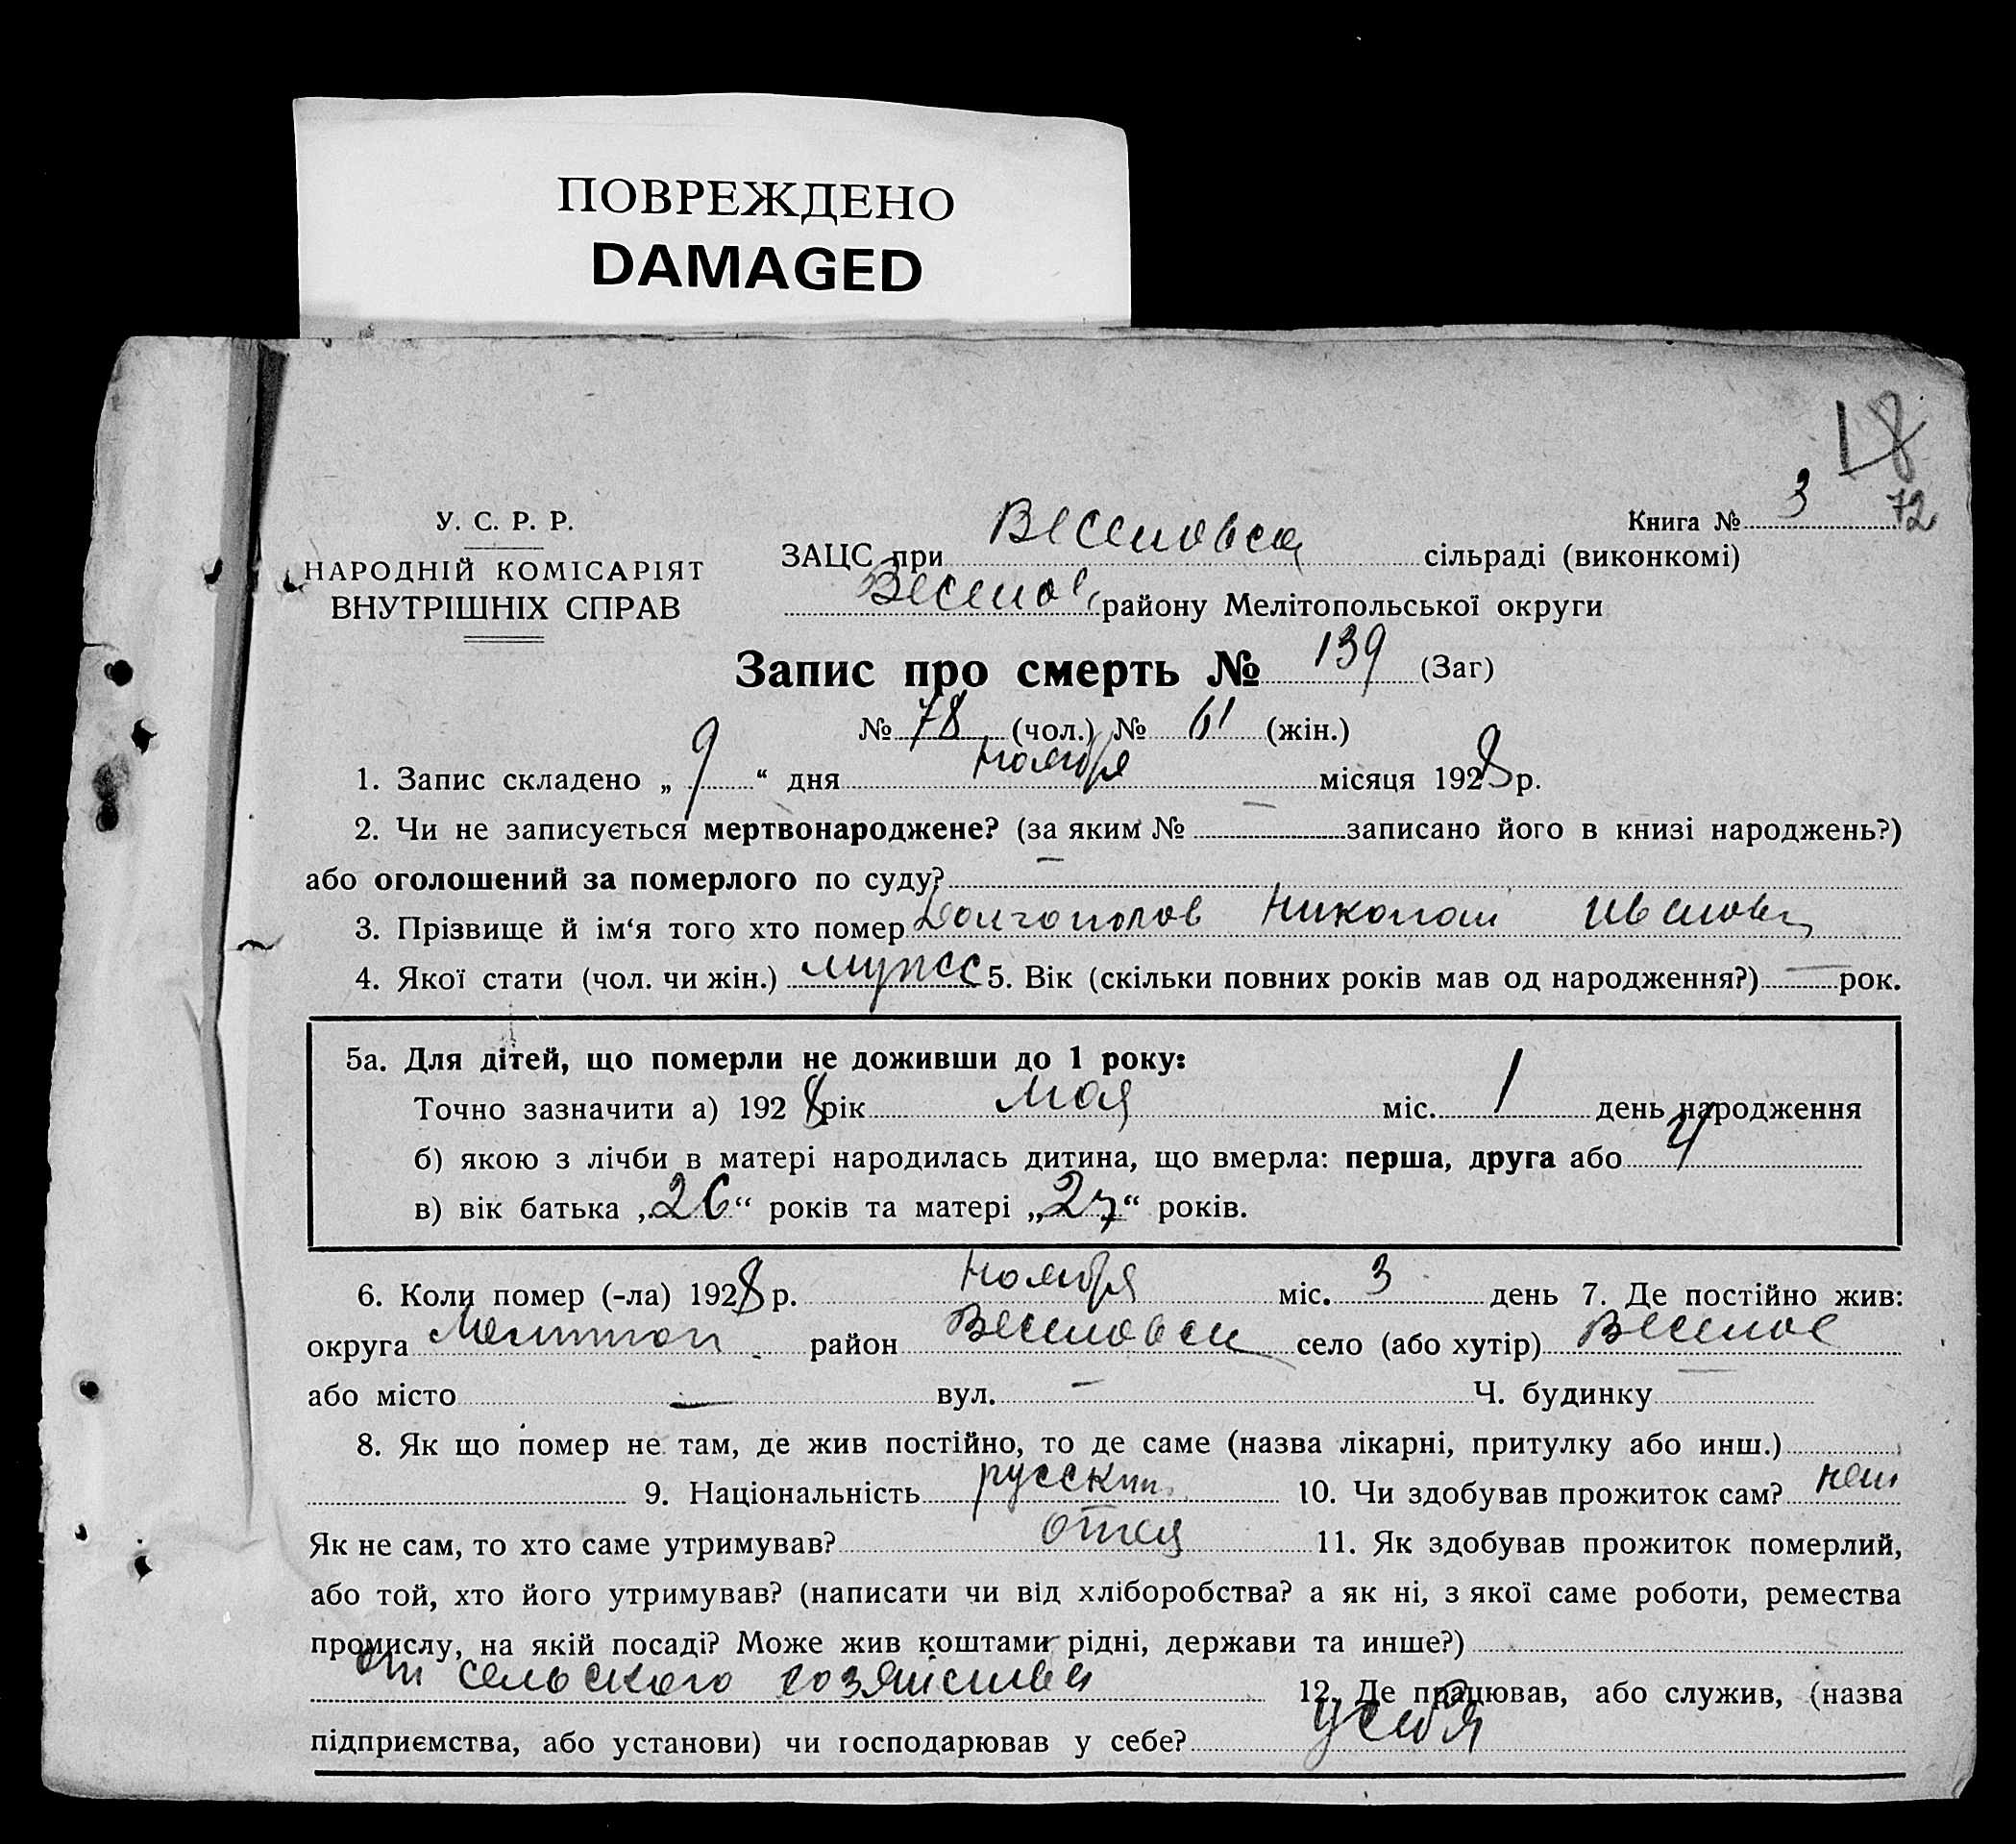 ПОВРЕЖДЕНО
DAMAGED
18
72
У. С. Р. Р.
НАРОДНІЙ КОМІСАРІЯТ
ВНУТРІШНІХ СПРАВ
Книга № 3
ЗАЦС при Веселовск сільраді (виконкомі)
Весело району Мелітопольської округи
Запис про смерть № 139 (Заг)
№ 78 (чол.) № 61 (жін.)
1. Запис складено „ 9 “ дня ноября місяця 1928 р.
2. Чи не записується мертвонароджене? (за яким № — записано його в книзі народжень?)
або оголошений за померлого по суду? —
3. Прізвище й ім‘я того хто помер Долгополов Николай Иванович
4. Якої стати (чол. чи жін.) мужс 5. Вік (скільки повних років мав од народження?) — рок.
5а. Для дітей, що померли не доживши до 1 року:
Точно зазначити а) 1928 рік мая міс. 1 день народження
б) якою з лічби в матері народилась дитина, що вмерла: перша, друга або 4
в) вік батька „26“ років та матері „27“ років.
6. Коли помер (-ла) 1928 р. ноября міс. 3 день 7. Де постійно жив:
округа Мелитоп район Веселовск село (або хутір) Веселое
або місто — вул. — Ч. будинку —
8. Як що помер не там, де жив постійно, то де саме (назва лікарні, притулку або инш.)
9. Національність русский 10. Чи здобував прожиток сам? нет
Як не сам, то хто саме утримував? отец 11. Як здобував прожиток померлий,
або той, хто його утримував? (написати чи від хліборобства? а як ні, з якої саме роботи, ремества
промислу, на якій посаді? Може жив коштами рідні, держави та инше?)
от сельского хозяйства 12. Де працював, або служив, (назва
підприємства, або установи) чи господарював у себе? у себя